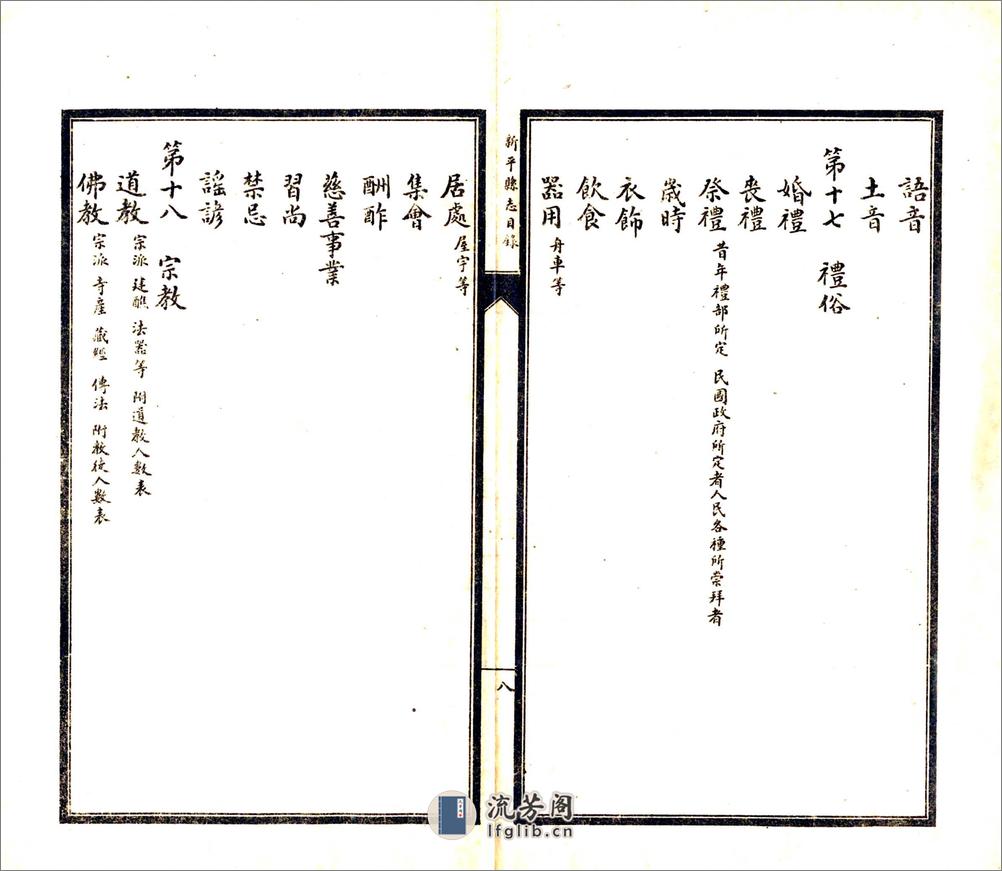 語音
土音
第十七 禮俗
婚禮
喪禮
祭禮 昔年禮部所定 民國政府所定者人民各種所崇拜者
歲時
衣飾
飲食
器用 舟車等
新平縣志目錄
八
居處 屋宇等
集會
酬酢
慈善事業
習尚
禁忌
謡諺
第十八 宗教
道教 宗派 建醮 法器等 附道教人數表
佛教 宗派 寺產 藏經 傳法 附教徒人數表
流芳阁
lfglib.cn